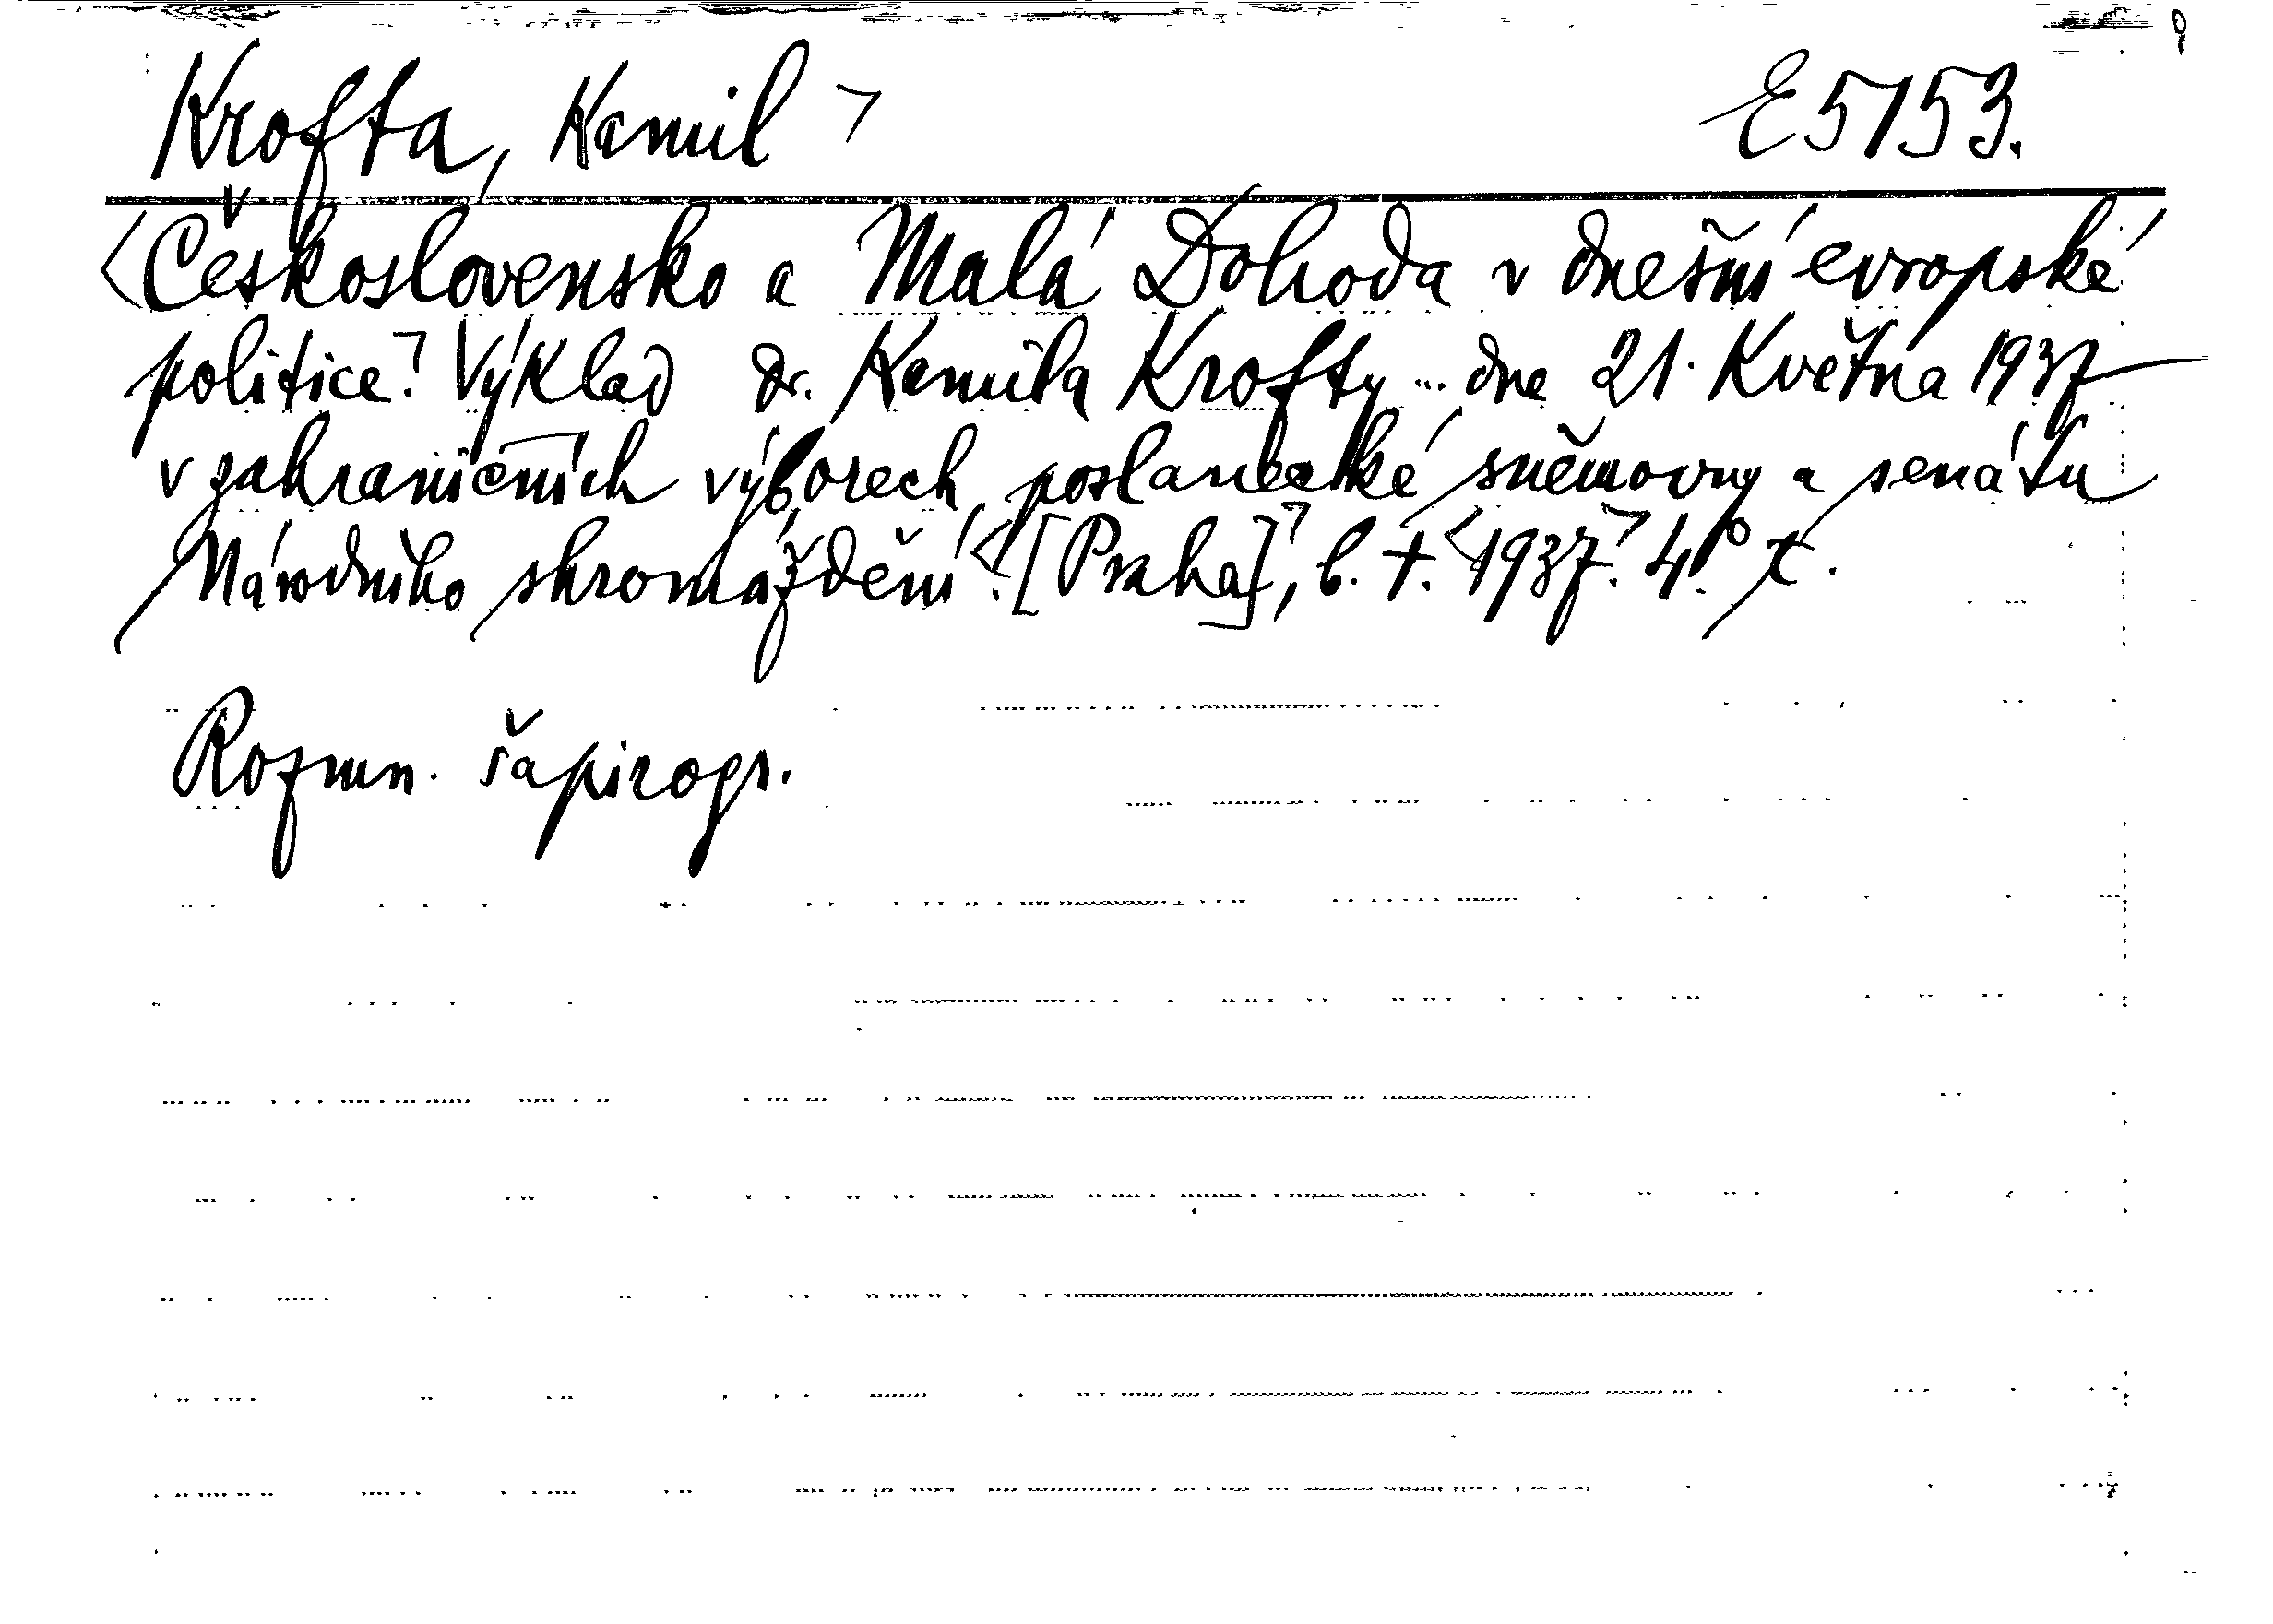 Krofta, Kamil ¬ E 5153.
<Československo a Malá Dohoda v dnešní evropské
politice.¬ Výklad dr. Kamila Krofty ... dne 21. Května 1937
v zahraničních výborech poslanecké sněmovny a senátu
Národního shromáždění.< [Praha],¬ b. t. <1937.¬ 4.°
Rozmn. šapirogr.